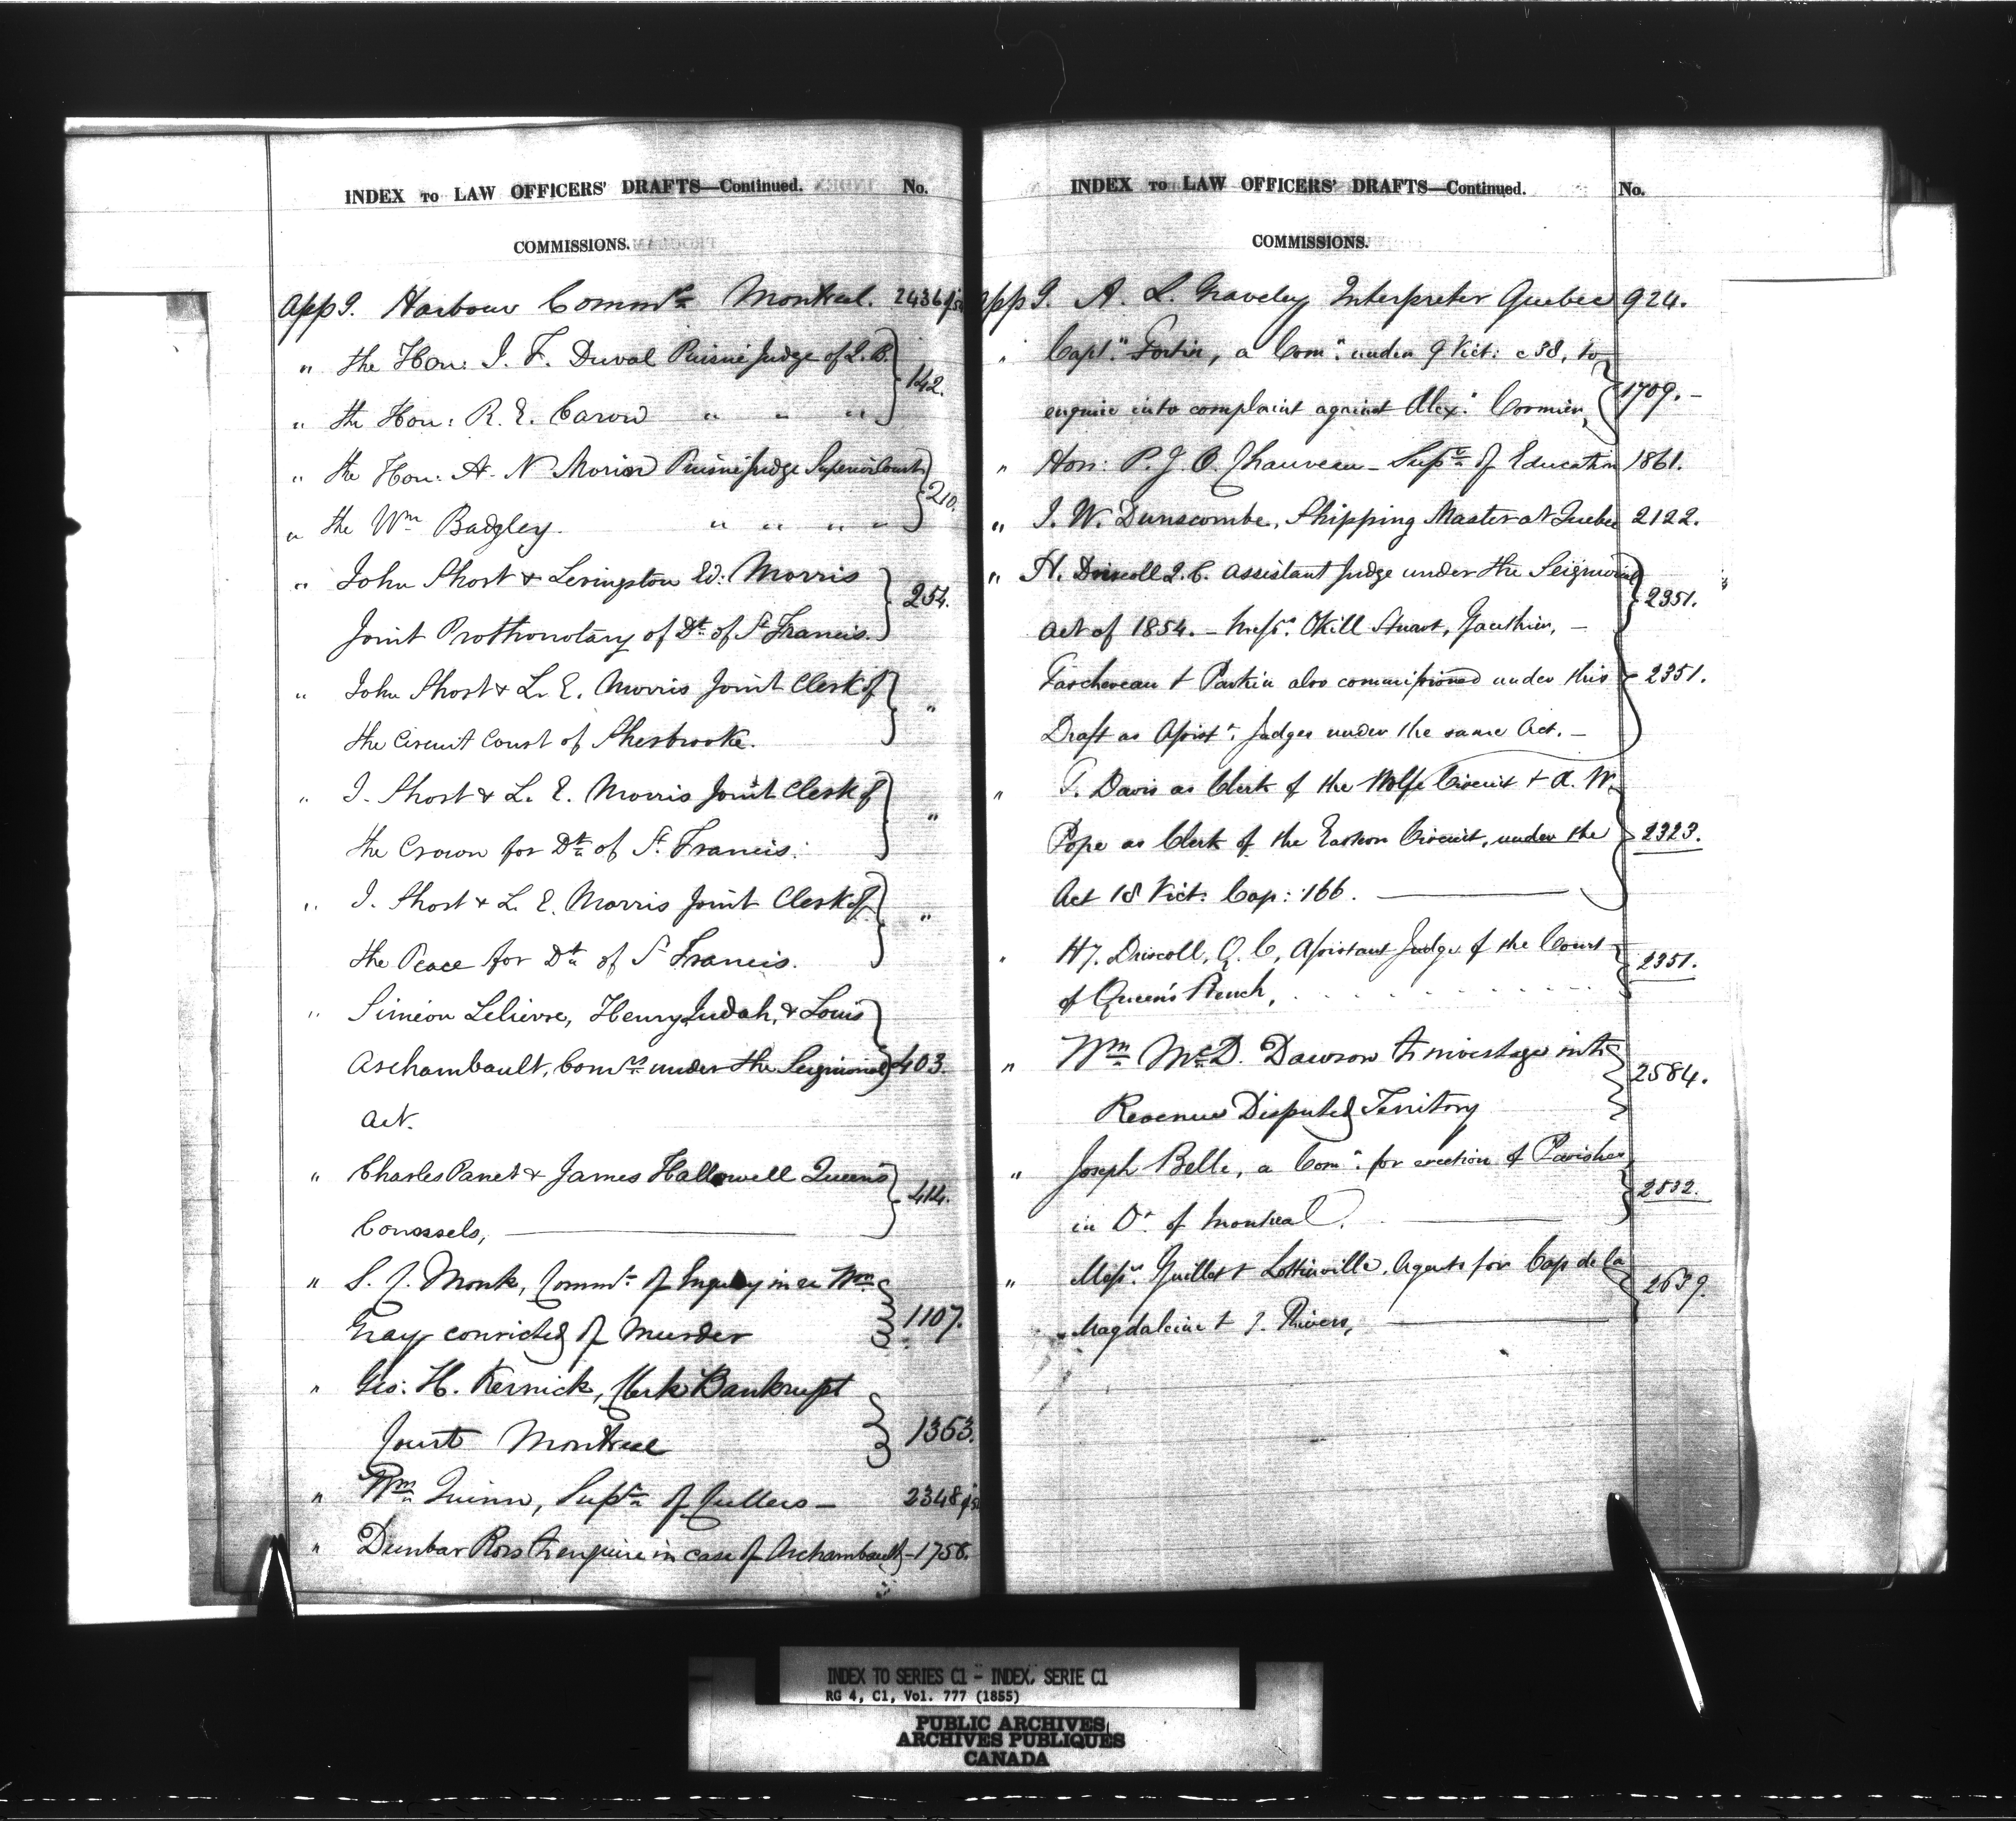 INDEX TO LAW OFFICERS' DRAFTS—Continued. No.
COMMISSIONS.
App G. Harbour Commrs Montreal. 2436 of 54
" the Hon: J. F. Duval Puisné Judge of Q. B. } 142.
" the Hon: R. E. Caron " " "
" the Hon: A. N. Morin Puisné Judge Superior Court } 210.
" the Wm Badgley. " " " "
" John Short & Levingston Ed: Morris } 254.
Joint Prothonotary of Dt. of St. Francis.
" John Short & L. E. Morris Joint Clerk of } "
the Circuit Court of Sherbrooke.
" J. Short & L. E. Morris Joint Clerk of } "
the Crown for Dt. of St. Francis.
" J. Short & L. E. Morris Joint Clerk of } "
the Peace for Dt. of St. Francis.
" Siméon Lelievre, Henry Judah, & Louis
Archambault, Comrs. under the Seigniorial } 403.
Act.
" Charles Panet & James Hallowell Queen's } 414.
Counsels, —
" S. C. Monk, Commr. of Inquiry in re Wm
Gray convicted of Murder } 1107.
" Geo: H. Kernick, Clerk Bankrupt
Court Montreal } 1363.
" Wm Quinn, Supt. of Cullers — 2348 of 54
" Dunbar Ross to enquire in case of Archambault — 1758.
INDEX TO LAW OFFICERS' DRAFTS—Continued. No.
COMMISSIONS.
App G. A. L. Graveley Interpreter Quebec 924.
" Capt. Fortin, a Comn. under 9 Vict: c 38, to
enquire into complaint against Alex. Cormier, } 1709. —
" Hon: P. J. O. Chauveau — Supt. of Education 1861.
" J. W. Dunscombe, Shipping Master at Quebec 2122.
" H. Driscoll Q. C. Assistant Judge under the Seigniorial } 2351.
Act of 1854. — Messrs. Okill Stuart, Gauthier, —
Taschereau & Parkin also commissioned under this } 2351.
Draft as Assistt. Judges under the same Act. —
" T. Davis as Clerk of the Wolfe Circuit & A. W.
Pope as Clerk of the Eastern Circuit, under the } 2323.
Act 18 Vict: Cap: 166. —
" Hy. Driscoll, Q. C, Assistant Judge of the Court } 2351.
of Queen's Bench, . . . . . . . .
" Wm McD. Dawson to investigate into
Revenue Disputed Territory } 2584.
" Joseph Belle, a Comr. for erection of Parishes } 2532.
in Dt. of Montreal. —
" Messrs. Guillet & Lottinville, Agents for Cap de la } 2639.
Magdaleine & 3. Rivers, —
INDEX TO SERIES C1 - INDEX, SERIE C1
RG 4, C1, Vol. 777 (1855)
PUBLIC ARCHIVES
ARCHIVES PUBLIQUES
CANADA